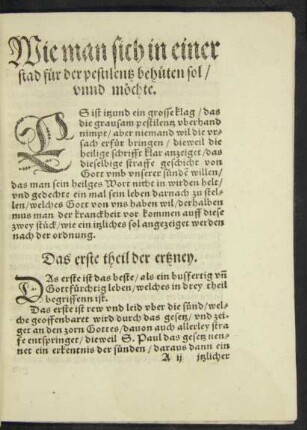 Wie man sich in einer
stad für der pestilentz behüten sol /
vnnd möchte.
ES ist itzund ein grosse klag / das
die grausam pestilentz vberhand
nimpt / aber niemand wil die vr-
sach erfür bringen / dieweil die
heilige schrifft klar anzeiget / das
dieselbige straffe geschicht von
Gott vmb vnserer sünde willen /
das man sein heilges Wort nicht in wirden helt /
vnd gedechte ein mal sein leben darnach zu stel-
len / welches Gott von vns haben wil / derhalben
mus man der kranckheit vor kommen auff diese
zwey stück / wie ein itzliches sol angezeiget werden
nach der ordnung.
Das erste theil der ertzney.
DAs erste ist das beste / als ein bussfertig vñ
Gottfürchtig leben / welches in drey theil
begriffenn ist.
Das erste ist rew vnd leid vber die sünd / wel-
che geoffenbaret wird durch das gesetz / vnd zei-
get an den zorn Gottes / dauon auch allerley stra
ffe entspringet / dieweil S. Paul das gesetz nen-
net ein erkentnis der sünden / daraus dann ein
A ij itzlicher